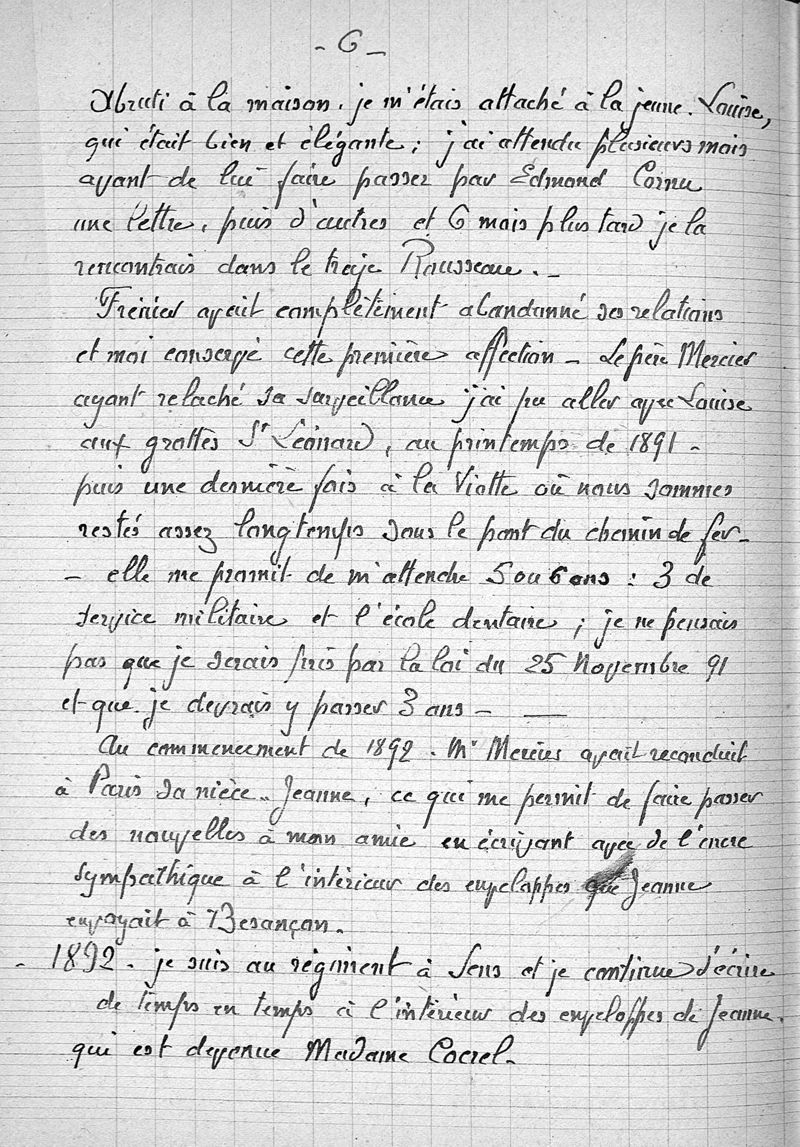 - 6 -
Abruti à la maison. je m'étais attaché à la jeune. Louise,
qui était bien et élégante ; j'ai attendu plusieurs mois
avant de lui faire passer par Edmond Cornu
une lettre, puis d'autres et 6 mois plus tard je la
rencontrais dans le traje Rousseau. -
Frénier avait complètement abandonné ses relations
et moi conservé cette première affection - Le père Mercier
ayant relaché sa surveillance j'ai pu aller avec Louise
aux grottes St Léonard, au printemps de 1891 -
puis une dernière fois à la Viotte où nous sommes
restés assez longtemps sous le pont du chemin de fer -
- elle me promit de m'attendre 5 ou 6 ans : 3 de
service militaire et l'école dentaire ; je ne pensais
pas que je serais pris par la loi du 25 Novembre 91
et que je devrais y passer 3 ans - —
Au commencement de 1892 . Mr Mercier avait reconduit
à Paris sa nièce.. Jeanne, ce qui me permit de faire passer
des nouvelles à mon amie en écrivant avec de l'encre
sympathique à l'intérieur des enveloppes que Jeanne
envoyait à Besançon.
- 1892 - je suis au régiment à Sens et je continue d'écrire
de temps en temps à l'intérieur des enveloppes de Jeanne.
qui est devenue Madame Cocrel.